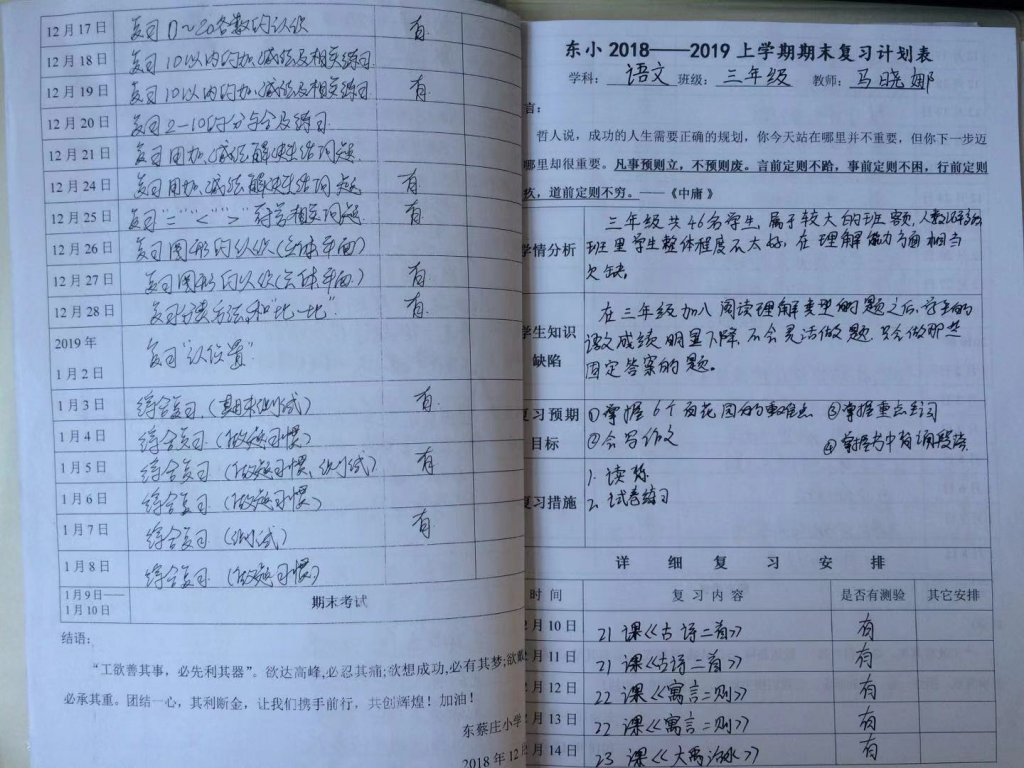 12月17日 复习0~20各数的认识 有
12月18日 复习10以内的加、减法及相关练习
12月19日 复习10以内的加、减法及相关练习 有
12月20日 复习2-10的分与合及练习
12月21日 复习用加、减法解决生活问题
12月24日 复习用加、减法解决生活问题 有
12月25日 复习"=""<"">"符号相关问题 有
12月26日 复习图形的认识(立体平面)
12月27日 复习图形的认识(立体平面) 有
12月28日 复习分类方法和"比一比" 有
2019年
1月2日 复习"认位置"
1月3日 综合复习(期末测试) 有
1月4日 综合复习(做题习惯)
1月5日 综合复习(做题习惯、测试) 有
1月6日 综合复习(做题习惯)
1月7日 综合复习(测试) 有
1月8日 综合复习(做题习惯)
1月9日——
1月10日 期末考试
结语:
"工欲善其事,必先利其器"。欲达高峰,必忍其痛;欲想成功,必有其梦;欲戴
必承其重。团结一心,其利断金,让我们携手前行,共创辉煌!加油!
东蔡庄小学
2018年12
东小2018——2019上学期期末复习计划表
学科: 语文 班级: 三年级 教师: 马晓娜
言:
哲人说,成功的人生需要正确的规划,你今天站在哪里并不重要,但你下一步迈
哪里却很重要。凡事预则立,不预则废。言前定则不跲,事前定则不困,行前定则
疚,道前定则不穷。——《中庸》
学情分析
三年级共46名学生,属于较大的班额,人数
班里学生整体程度不太好,在理解能力方面相当
欠缺。
学生知识
缺陷
在三年级加入阅读理解类型的题之后,学生的
语文成绩明显下降,不会灵活做题,只会做那些
固定答案的题。
复习预期
目标
①掌握6个百花园的重难点 ③掌握重点生词
②会写作文 ④掌握书中背诵段落
复习措施
1. 读练
2. 试卷练习
详细复习安排
时间 复习内容 是否有测验 其它安排
2月10日 21课《古诗二首》 有
2月11日 21课《古诗二首》 有
2月12日 22课《寓言二则》 有
2月13日 22课《寓言二则》 有
2月14日 23课《大禹治水》 有